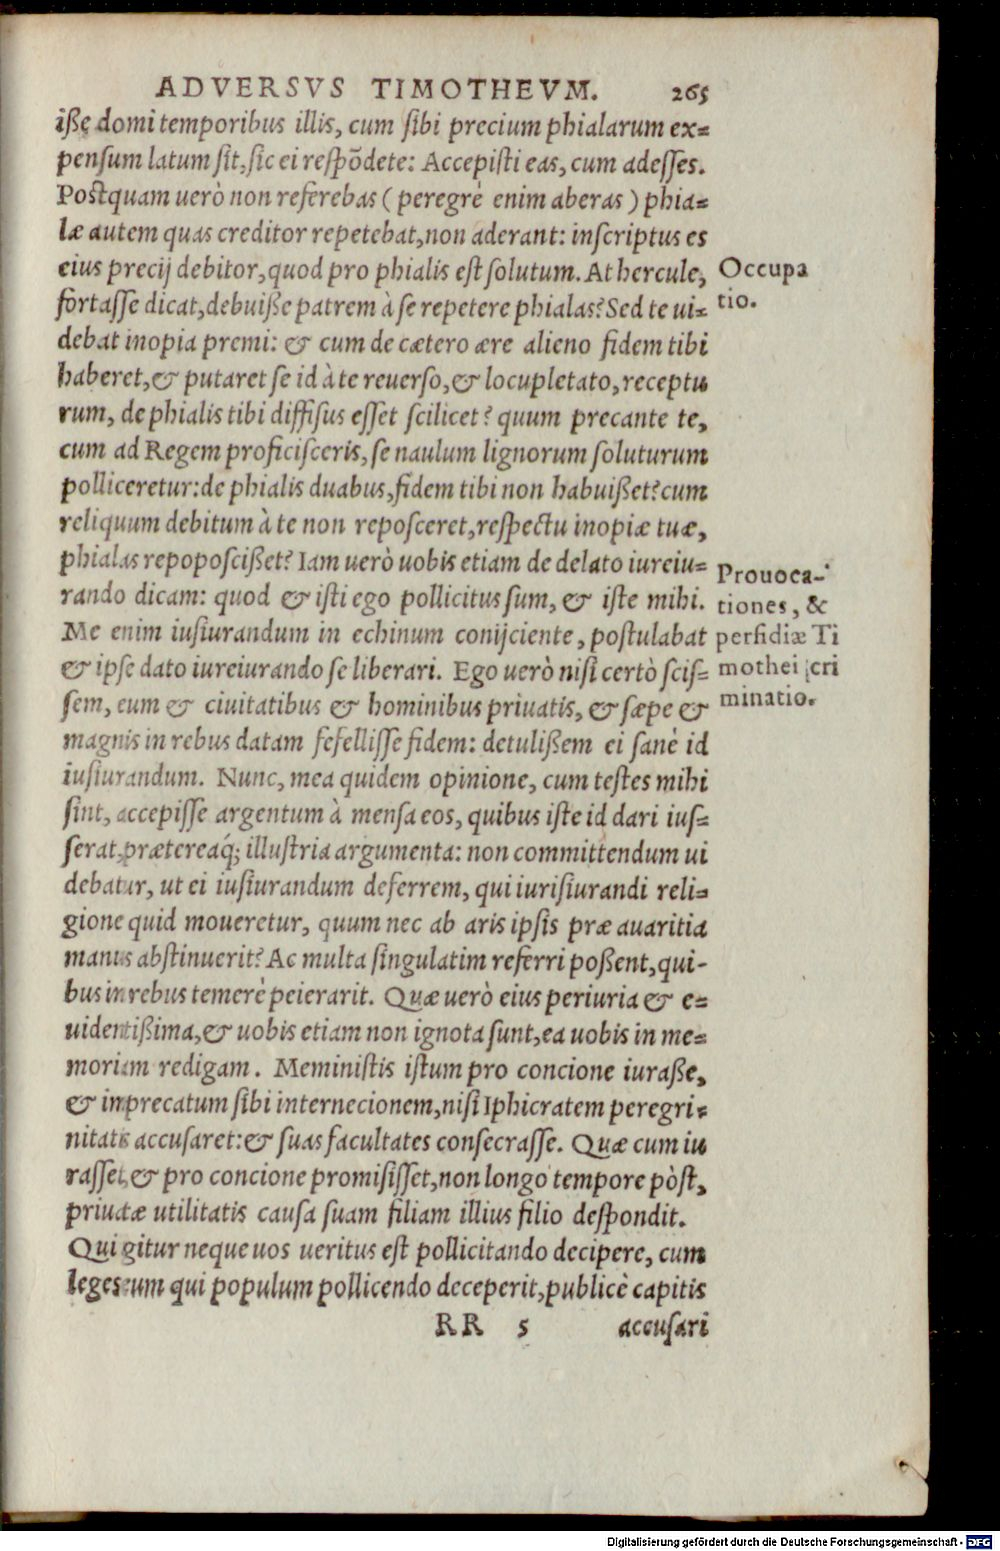 ADVERSVS TIMOTHEVM. 265
iße domi temporibus illis, cum sibi precium phialarum ex=
pensum latum sit, sic ei respõdete: Accepisti eas, cum adesses.
Postquam uerò non referebas ( peregrè enim aberas ) phia=
læ autem quas creditor repetebat, non aderant: inscriptus es
eius precij debitor, quod pro phialis est solutum. At hercule,
fortasse dicat, debuiße patrem à se repetere phialas? Sed te ui=
debat inopia premi: & cum de cætero ære alieno fidem tibi
haberet, & putaret se id à te reuerso, & locupletato, receptu
rum, de phialis tibi diffisus esset scilicet? quum precante te,
cum ad Regem proficisceris, se naulum lignorum soluturum
polliceretur: de phialis duabus, fidem tibi non habuißet? cum
reliquum debitum à te non reposceret, respectu inopiæ tuæ,
phialas repoposcißet? Iam uerò uobis etiam de delato iureiu=
rando dicam: quod & isti ego pollicitus sum, & iste mihi.
Me enim iusiurandum in echinum conijciente, postulabat
& ipse dato iureiurando se liberari. Ego uerò nisi certò scis=
sem, eum & ciuitatibus & hominibus priuatis, & sæpe &
magnis in rebus datam fefellisse fidem: detulißem ei sanè id
iusiurandum. Nunc, mea quidem opinione, cum testes mihi
sint, accepisse argentum à mensa eos, quibus iste id dari ius=
serat, prætereaq́; illustria argumenta: non committendum ui
debatur, ut ei iusiurandum deferrem, qui iurisiurandi reli=
gione quid moueretur, quum nec ab aris ipsis præ auaritia
manus abstinuerit? Ac multa singulatim referri poßent, qui-
bus in rebus temerè peierarit. Quæ uerò eius periuria & e=
uidentißima, & uobis etiam non ignota sunt, ea uobis in me=
moriam redigam. Meministis istum pro concione iuraße,
& imprecatum sibi internecionem, nisi Iphicratem peregri=
nitatis accusaret: & suas facultates consecrasse. Quæ cum iu
rasset, & pro concione promisisset, non longo tempore pòst,
priuatæ utilitatis causa suam filiam illius filio despondit.
Qui gitur neque uos ueritus est pollicitando decipere, cum
leges eum qui populum pollicendo deceperit, publicè capitis
RR 5 accusari
Occupa
tio.
Prouoca-
tiones, &
perfidiæ Ti
mothei cri
minatio.
Digitalisierung gefördert durch die Deutsche Forschungsgemeinschaft - DFG